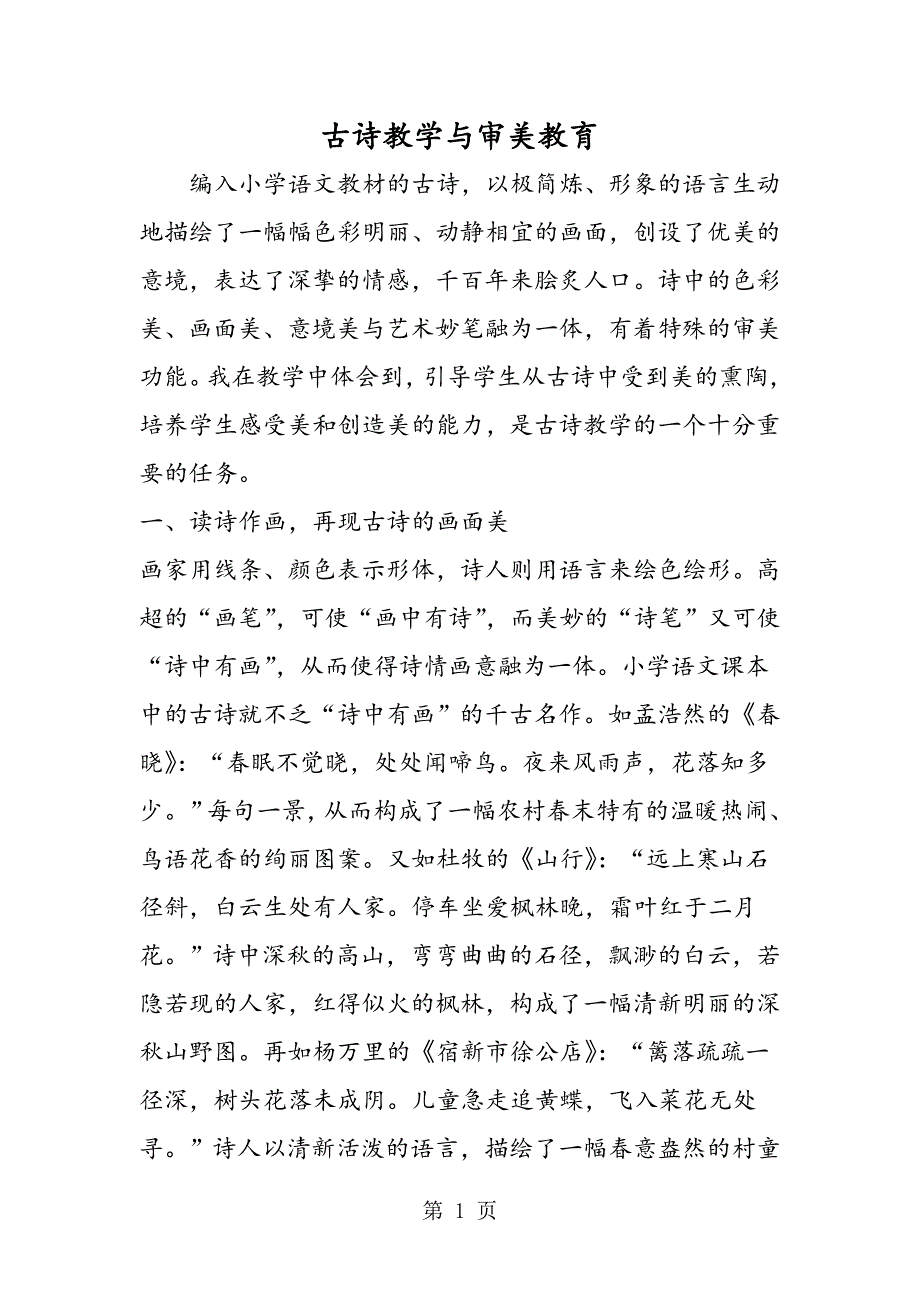 古诗教学与审美教育
编入小学语文教材的古诗，以极简炼、形象的语言生动
地描绘了一幅幅色彩明丽、动静相宜的画面，创设了优美的
意境，表达了深挚的情感，千百年来脍炙人口。诗中的色彩
美、画面美、意境美与艺术妙笔融为一体，有着特殊的审美
功能。我在教学中体会到，引导学生从古诗中受到美的熏陶，
培养学生感受美和创造美的能力，是古诗教学的一个十分重
要的任务。
一、读诗作画，再现古诗的画面美
画家用线条、颜色表示形体，诗人则用语言来绘色绘形。高
超的“画笔”，可使“画中有诗”，而美妙的“诗笔”又可使
“诗中有画”，从而使得诗情画意融为一体。小学语文课本
中的古诗就不乏“诗中有画”的千古名作。如孟浩然的《春
晓》：“春眠不觉晓，处处闻啼鸟。夜来风雨声，花落知多
少。”每句一景，从而构成了一幅农村春末特有的温暖热闹、
鸟语花香的绚丽图案。又如杜牧的《山行》：“远上寒山石
径斜，白云生处有人家。停车坐爱枫林晚，霜叶红于二月
花。”诗中深秋的高山，弯弯曲曲的石径，飘渺的白云，若
隐若现的人家，红得似火的枫林，构成了一幅清新明丽的深
秋山野图。再如杨万里的《宿新市徐公店》：“篱落疏疏一
径深，树头花落未成阴。儿童急走追黄蝶，飞入菜花无处
寻。”诗人以清新活泼的语言，描绘了一幅春意盎然的村童
第 1 页